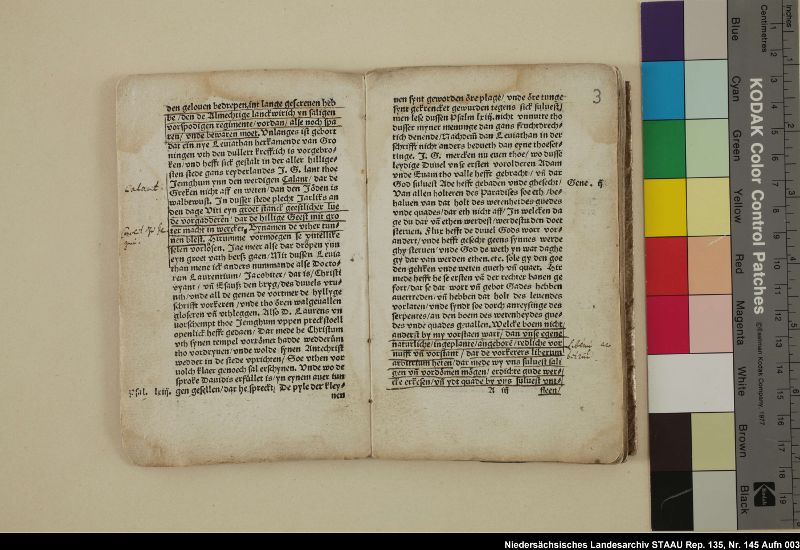 den gelouen bedrepen, int lange gescreuen heb
be / den de Almechtige lanckwirich yn saligen
vorspodigen regimente / vordan / alse noch spa
ren / vnde bewaren moet. Vnlanges ist gehort
dat ein nye Leuiathan herkamende van Gro
ningen vth den dullert krefftich is vorgebro⸗
ken / vnd hefft sick gestalt in der aller hillige⸗
sten stede gans reyderlandes J. G. lant thoe
Jenghum ynn den werdigen Calant / dat de
Greken nicht aff en weten / dan den Jöden is
walbewust. In dusser stede plecht Jarlikes an
den dage Viti eyn groet stanck geestlicker lüe
de vorgadderen / dar de hillige Geest mit gro
ter macht in wercket. Bynamen de vther tun⸗
nen blest.
selen vorlösen. Jae meer alse dar dröpen ynn
eyn groet vath berß gaen / Mit dussen Leuia
than mene ick anders nummande alse Docto⸗
rem Laurentium / Jacobiter / dat is / Christi
vyant / vñ Esaufs den bryg / des duuels vru⸗
nth / vnde all de genen de vortmer de hyllyge
schrifft vorkeren / vnde tho ören walgeuallen
gloseren vñ vthleggen. Also D. Laurens vn
vorschempt thoe Jenghum vppen predstoell
openlick hefft gedaen / Dar mede he Christum
vth synen tempel vorxömet hadde wedderüm
tho vordryuen / vnde wolde synen Antechrist
wedder in de stede vprichten / Soe vthen vor
volch klaer genoech sal erschynen. Vnde wo de
sproke Dauidis erfüllet is / yn eynem auer tun
Psal. lxiij. gen gesellen / dat he sprecht: De pyle der kley⸗
nen
Calant
3
nen synt geworden öre plage / vnde öre tunge
synt gekrencket gewurden tegens sick suluest /
men lese dussen Psalm lxiij. nicht vnnutte tho
dusser myner meninge dan gans fruchtbrech⸗
tich denende / Nachdem den Leuiathan in der
schrifft nicht anders beduth dan eyne thoeset⸗
tinge. J. G. mercken nu euen thoe / wo dusse
leydige Düuel vnse ersten vorolderen Adam
vnde Euam tho valle hefft gebracht / vñ dar
God suluest Ade hefft gebaden vnde ghesecht / Gene. ij
Van allen holteren des Paradises soe eth / bes
haluen van dat holt des wetenheides guedes
vnde quades / dar eth nicht aff / In welcken da
ge du dar vã ethen werdest / werdestu den doet
steruen. Flux hefft de duuel Gods wort vor⸗
andert / vnde hefft gesecht geens synnes werde
ghy steruen / vnde God de weth yn wat daghe
gy dar van werden ethen. etc. sole gy den goe
den gelicken vnde weten gueth vñ quaet. Hir
mede hefft he se ersten vã der rechter banen ge
fort / dat se dat wort vñ gebot Gades hebben
auertreden / vñ hebben dat holt des leuendes
vorlaten / vnde syndt soe dorch anreysinge des
serpentes / an den boem des wetenheydes gue⸗
des vnde quades geuallen. Welcke boem nicht
anderst by my vorstaen wart / dan vnse egene
natürliche / ingeplante / angeböre / redliche vor
nufft vñ vorstant / dat de vorkerers liberum
arbitrium heten / dar mede wy vns suluest sali
gen vñ vordömen mögen / erdichte gude wer⸗
cke erkesen / vñ ydt quade by vns suluest vnt⸗
A iij fleen /
Inches
Centimetres
Blue
Cyan
Green
Yellow
Red
Magenta
White
Brown
Black
KODAK Color Control Patches
©Eastman Kodak Company, 1977
Kodak
Niedersächsisches Landesarchiv STAAU Rep. 135, Nr. 145 Aufn 003